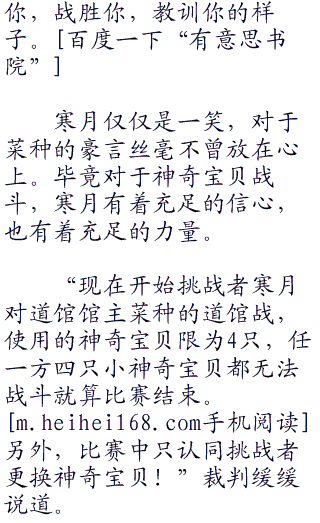 你，战胜你，教训你的样
子。[百度一下“有意思书
院”]
寒月仅仅是一笑，对于
菜种的豪言丝毫不曾放在心
上。毕竟对于神奇宝贝战
斗，寒月有着充足的信心，
也有着充足的力量。
“现在开始挑战者寒月
对道馆馆主菜种的道馆战，
使用的神奇宝贝限为4只，任
一方四只小神奇宝贝都无法
战斗就算比赛结束。
[m.heihei168.com手机阅读]
另外，比赛中只认同挑战者
更换神奇宝贝！”裁判缓缓
说道。